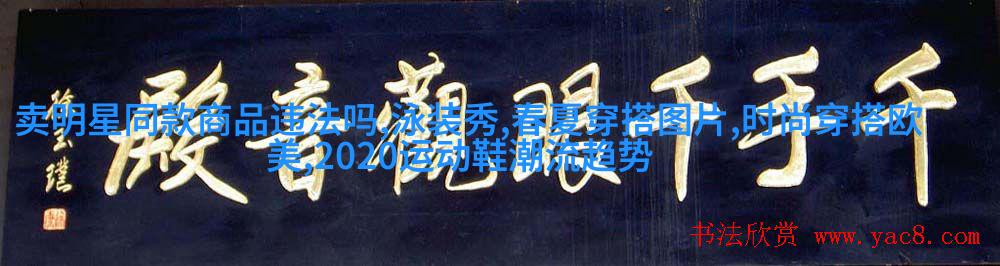 千手千眼觀音殿
卖明星同款商品违法吗,泳装秀,春夏穿搭图片,时尚穿搭欧
美,2020运动鞋潮流趋势
书法欣赏 www.yac8.com